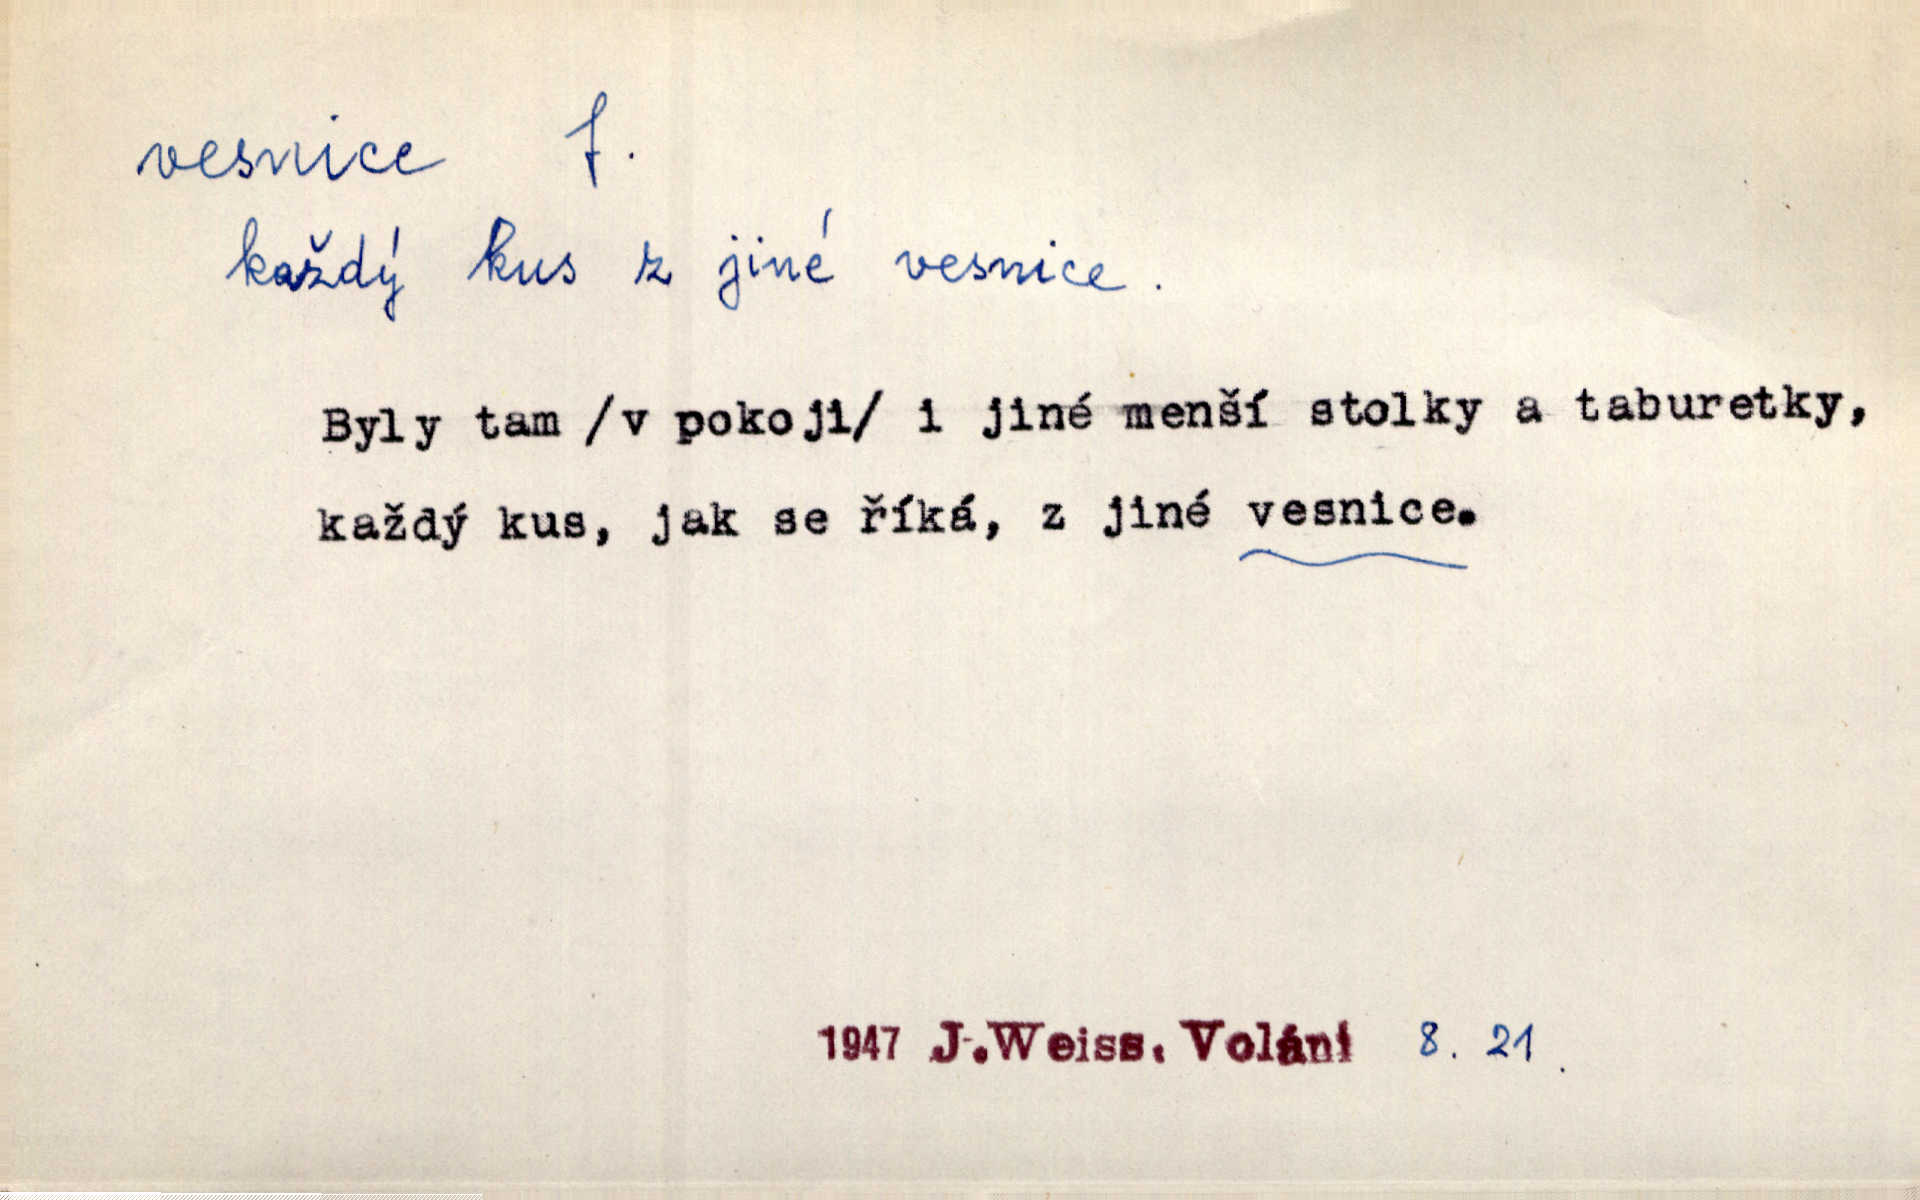 vesnice f.
každý kus z jiné vesnice.
Byly tam /v pokoji/ i jiné menší stolky a taburetky,
každý kus, jak se říká, z jiné vesnice.
1947 J.Weiss. Volání 8. 21.